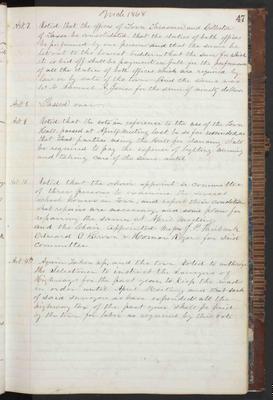 March 1868
47
Art. 7 Voted that the offices of Town Treasurer and Collector
of Taxes be consolidated, that the duties of both offices
be performed by one person and that the same be
let out to the lowest bidder, that the sum for which
it is bid off shall be payment in full for the performance
of all the duties of both offices which are required by
law or by vote of the town. And the same was
let to Samuel for the sum of ninety dollars
Art. 8 Passed over
Art. 9 Voted that the vote in reference to the use of the Town
Hall passed at April meeting last be so far reconsidered
that parties using the Hall for dancing shall
be required to pay the expense of lighting, warming
and taking care of the same until
Art. 10 Voted that the chair appoint a committee
of three persons to examine the several
school houses in Town, and report their condition
what repairs are necessary and some plan for
repairing the same, at April meeting
and the Chair appointed Messrs J. P.
Edward & for said
Committee.
Art. 4th Again taken up, and the town voted to authorize
the Selectmen to instruct the Surveyors of
Highways for the past year to keep the roads
in order until April Meeting and that such
of said Surveyors as have expended all the
highway tax of the past year shall be paid
by the town for labor as required by this vote